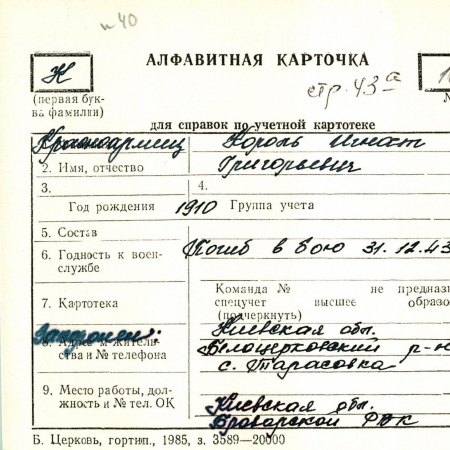 п 40
АЛФАВИТНАЯ КАРТОЧКА
К
стр. 43а
(первая бук-
ва фамилии)
для справок по учетной картотеке
Красноармеец Король Игнат
2. Имя, отчество Григорьевич
3. 4.
Год рождения 1910 Группа учета
5. Состав
6. Годность к воен-
службе
Погиб в бою 31.12.43
7. Картотека
Команда № не предназн
спецучет высшее образо
(подчеркнуть)
Захоронен: Киевская обл.
8. Адрес и жительства и № телефона
Белоцерковский р-н
с. Тарасовка
9. Место работы, дол-
жность и № тел. ОК
Киевская обл.
Броварской РВК
Б. Церковь, гортип., 1985, з. 3589—20000